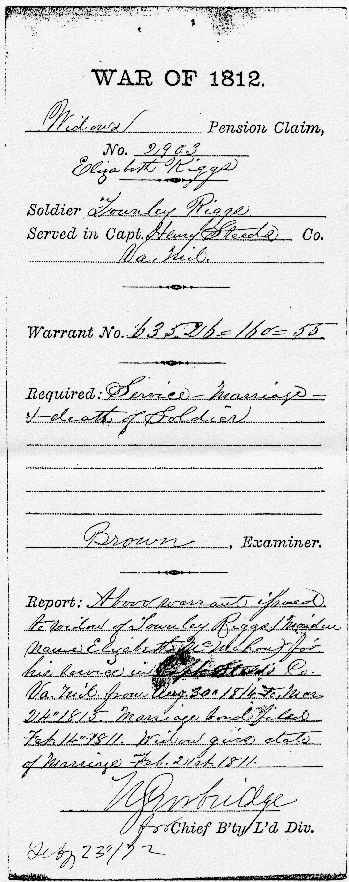 WAR OF 1812.
Widow's Pension Claim,
No. 2903
Elizabeth Riggs
Soldier Townley Riggs
Served in Capt. Henry Steeds Co.
Va. Mil.
Warrant No. 63526 = 160 = 55
Required: Service - Marriage -
& death of Soldier
Brown, Examiner.
Report: Above warrant issued
to widow of Townley Riggs (Maiden
name Elizabeth
his service in Capt. Steeds Co.
Va. Mil. from Aug 30" 1814 to Mar
1815 - Marriage bond filed
Feb. 14" 1811. Widow gives date
of Marriage Feb. 21st 1811.
for Chief B'ty L'd Div.